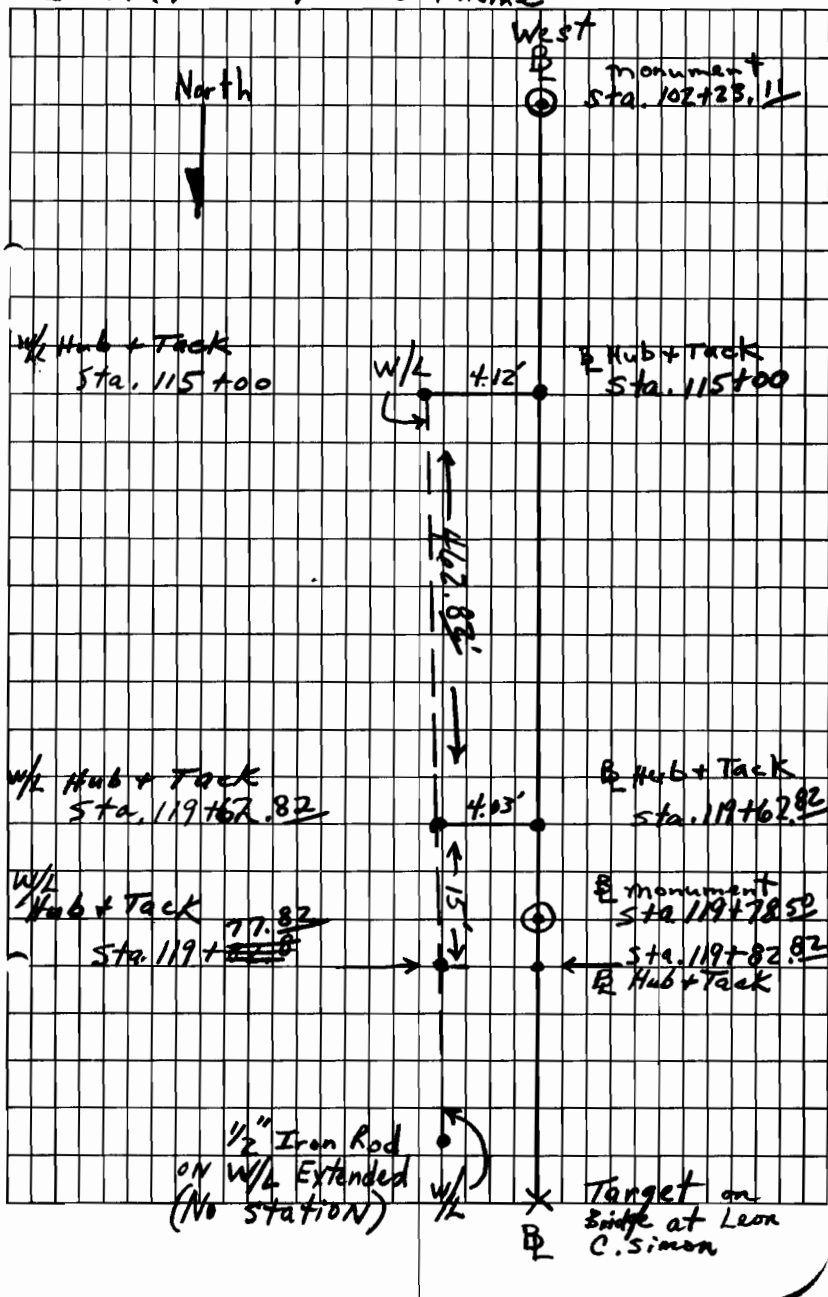 West
North
B/L
monument
sta. 102+23.11
W/L Hub + Tack
Sta. 115+00
W/L
4.12'
B/L Hub + Tack
Sta. 115+00
462.82'
W/L Hub + Tack
Sta. 119+62.82
4.03'
B/L Hub + Tack
sta. 119+62.82
15'
W/L
Hub + Tack
77.82
Sta. 119+
B/L monument
Sta 119+78.50
sta. 119+82.82
B/L Hub + Tack
1/2" Iron Rod
on W/L Extended
(No station)
W/L
B/L
Target on
Bridge at Leon
C. Simon